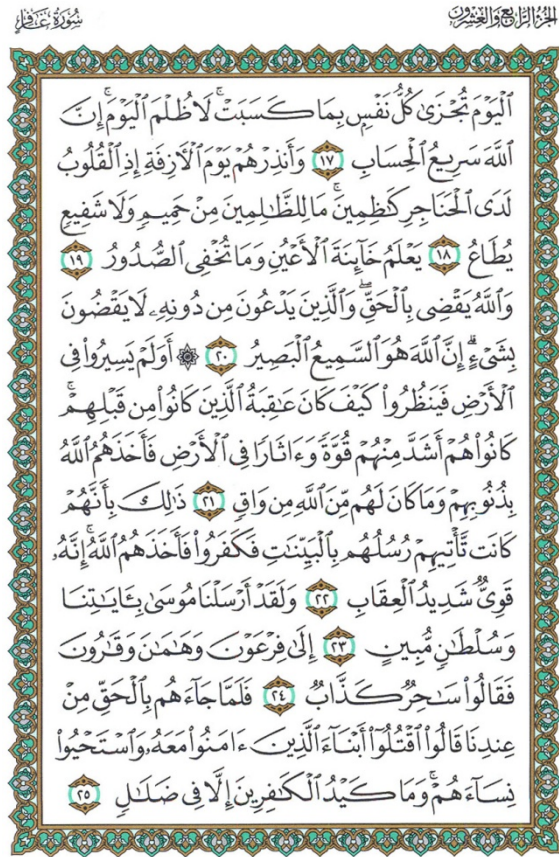 الجزء الرابع والعشرون
سورة غافر
ٱلۡيَوۡمَ تُجۡزَىٰ كُلُّ نَفۡسِۭ بِمَا كَسَبَتۡۚ لَا ظُلۡمَ ٱلۡيَوۡمَۚ إِنَّ
ٱللَّهَ سَرِيعُ ٱلۡحِسَابِ ١٧ وَأَنذِرۡهُمۡ يَوۡمَ ٱلۡأٓزِفَةِ إِذِ ٱلۡقُلُوبُ
لَدَى ٱلۡحَنَاجِرِ كَٰظِمِينَۚ مَا لِلظَّٰلِمِينَ مِنۡ حَمِيمٖ وَلَا شَفِيعٖ
يُطَاعُ ١٨ يَعۡلَمُ خَآئِنَةَ ٱلۡأَعۡيُنِ وَمَا تُخۡفِي ٱلصُّدُورُ ١٩
وَٱللَّهُ يَقۡضِي بِٱلۡحَقِّۖ وَٱلَّذِينَ يَدۡعُونَ مِن دُونِهِۦ لَا يَقۡضُونَ
بِشَيۡءٍۗ إِنَّ ٱللَّهَ هُوَ ٱلسَّمِيعُ ٱلۡبَصِيرُ ٢٠ ۞ أَوَلَمۡ يَسِيرُواْ فِي
ٱلۡأَرۡضِ فَيَنظُرُواْ كَيۡفَ كَانَ عَٰقِبَةُ ٱلَّذِينَ كَانُواْ مِن قَبۡلِهِمۡۚ
كَانُواْ هُمۡ أَشَدَّ مِنۡهُمۡ قُوَّةٗ وَءَاثَارٗا فِي ٱلۡأَرۡضِ فَأَخَذَهُمُ ٱللَّهُ
بِذُنُوبِهِمۡ وَمَا كَانَ لَهُم مِّنَ ٱللَّهِ مِن وَاقٖ ٢١ ذَٰلِكَ بِأَنَّهُمۡ
كَانَت تَّأۡتِيهِمۡ رُسُلُهُم بِٱلۡبَيِّنَٰتِ فَكَفَرُواْ فَأَخَذَهُمُ ٱللَّهُۚ إِنَّهُۥ
قَوِيّٞ شَدِيدُ ٱلۡعِقَابِ ٢٢ وَلَقَدۡ أَرۡسَلۡنَا مُوسَىٰ بِـَٔايَٰتِنَا
وَسُلۡطَٰنٖ مُّبِينٍ ٢٣ إِلَىٰ فِرۡعَوۡنَ وَهَٰمَٰنَ وَقَٰرُونَ
فَقَالُواْ سَٰحِرٞ كَذَّابٞ ٢٤ فَلَمَّا جَآءَهُم بِٱلۡحَقِّ مِنۡ
عِندِنَا قَالُواْ ٱقۡتُلُوٓاْ أَبۡنَآءَ ٱلَّذِينَ ءَامَنُواْ مَعَهُۥ وَٱسۡتَحۡيُواْ
نِسَآءَهُمۡۚ وَمَا كَيۡدُ ٱلۡكَٰفِرِينَ إِلَّا فِي ضَلَٰلٖ ٢٥